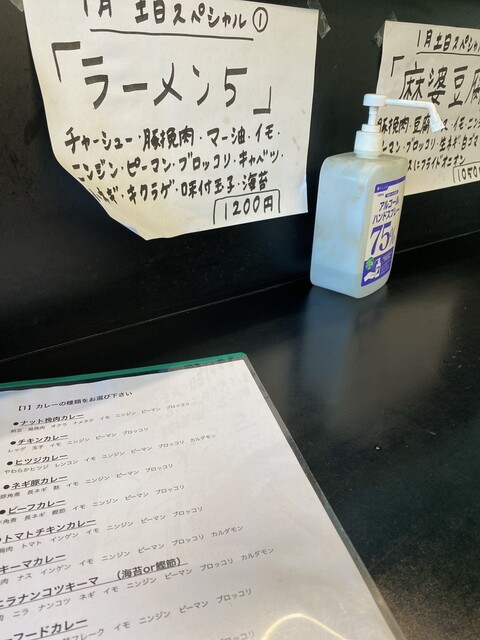 1月 土日スペシャル①
「ラーメン5」
チャーシュー・豚挽肉・マー油・イモ・
ニンジン・ピーマン・ブロッコリ・キャベツ・
ネギ・キクラゲ・味付玉子・海苔
1200円
1月 土日スペシャル
「麻婆豆腐
豚挽肉・豆腐・イモ・ニンジ
ピーマン・ブロッコリ・
にフライドオニオン
1050
アルコール
ハンドスプレー
75%
【1】カレーの種類をお選び下さい
●ナット挽肉カレー
納豆 豚挽肉 オクラ ナメタケ イモ ニンジン ピーマン ブロッコリ
●チキンカレー
レッグ 玉子 イモ ニンジン ピーマン ブロッコリ
●ヒツジカレー
やわらかヒツジ レンコン イモ ニンジン ピーマン ブロッコリ カルダモン
●ネギ豚カレー
豚角煮 長ネギ 麩 イモ ニンジン ピーマン ブロッコリ
●ビーフカレー
牛角煮 長ネギ イモ ニンジン ピーマン ブロッコリ
●トマトチキンカレー
鶏肉 トマト インゲン イモ ニンジン ピーマン ブロッコリ
キーマカレー
肉 ナス インゲン イモ ニンジン ピーマン ブロッコリ カルダモン
ニラナンコツキーマ (海苔or鰹節)
肉 ニラ ナンコツ ネギ イモ ニンジン ピーマン ブロッコリ カルダモン
フードカレー
フレーク イモ ニンジン ピーマン ブロッコリ